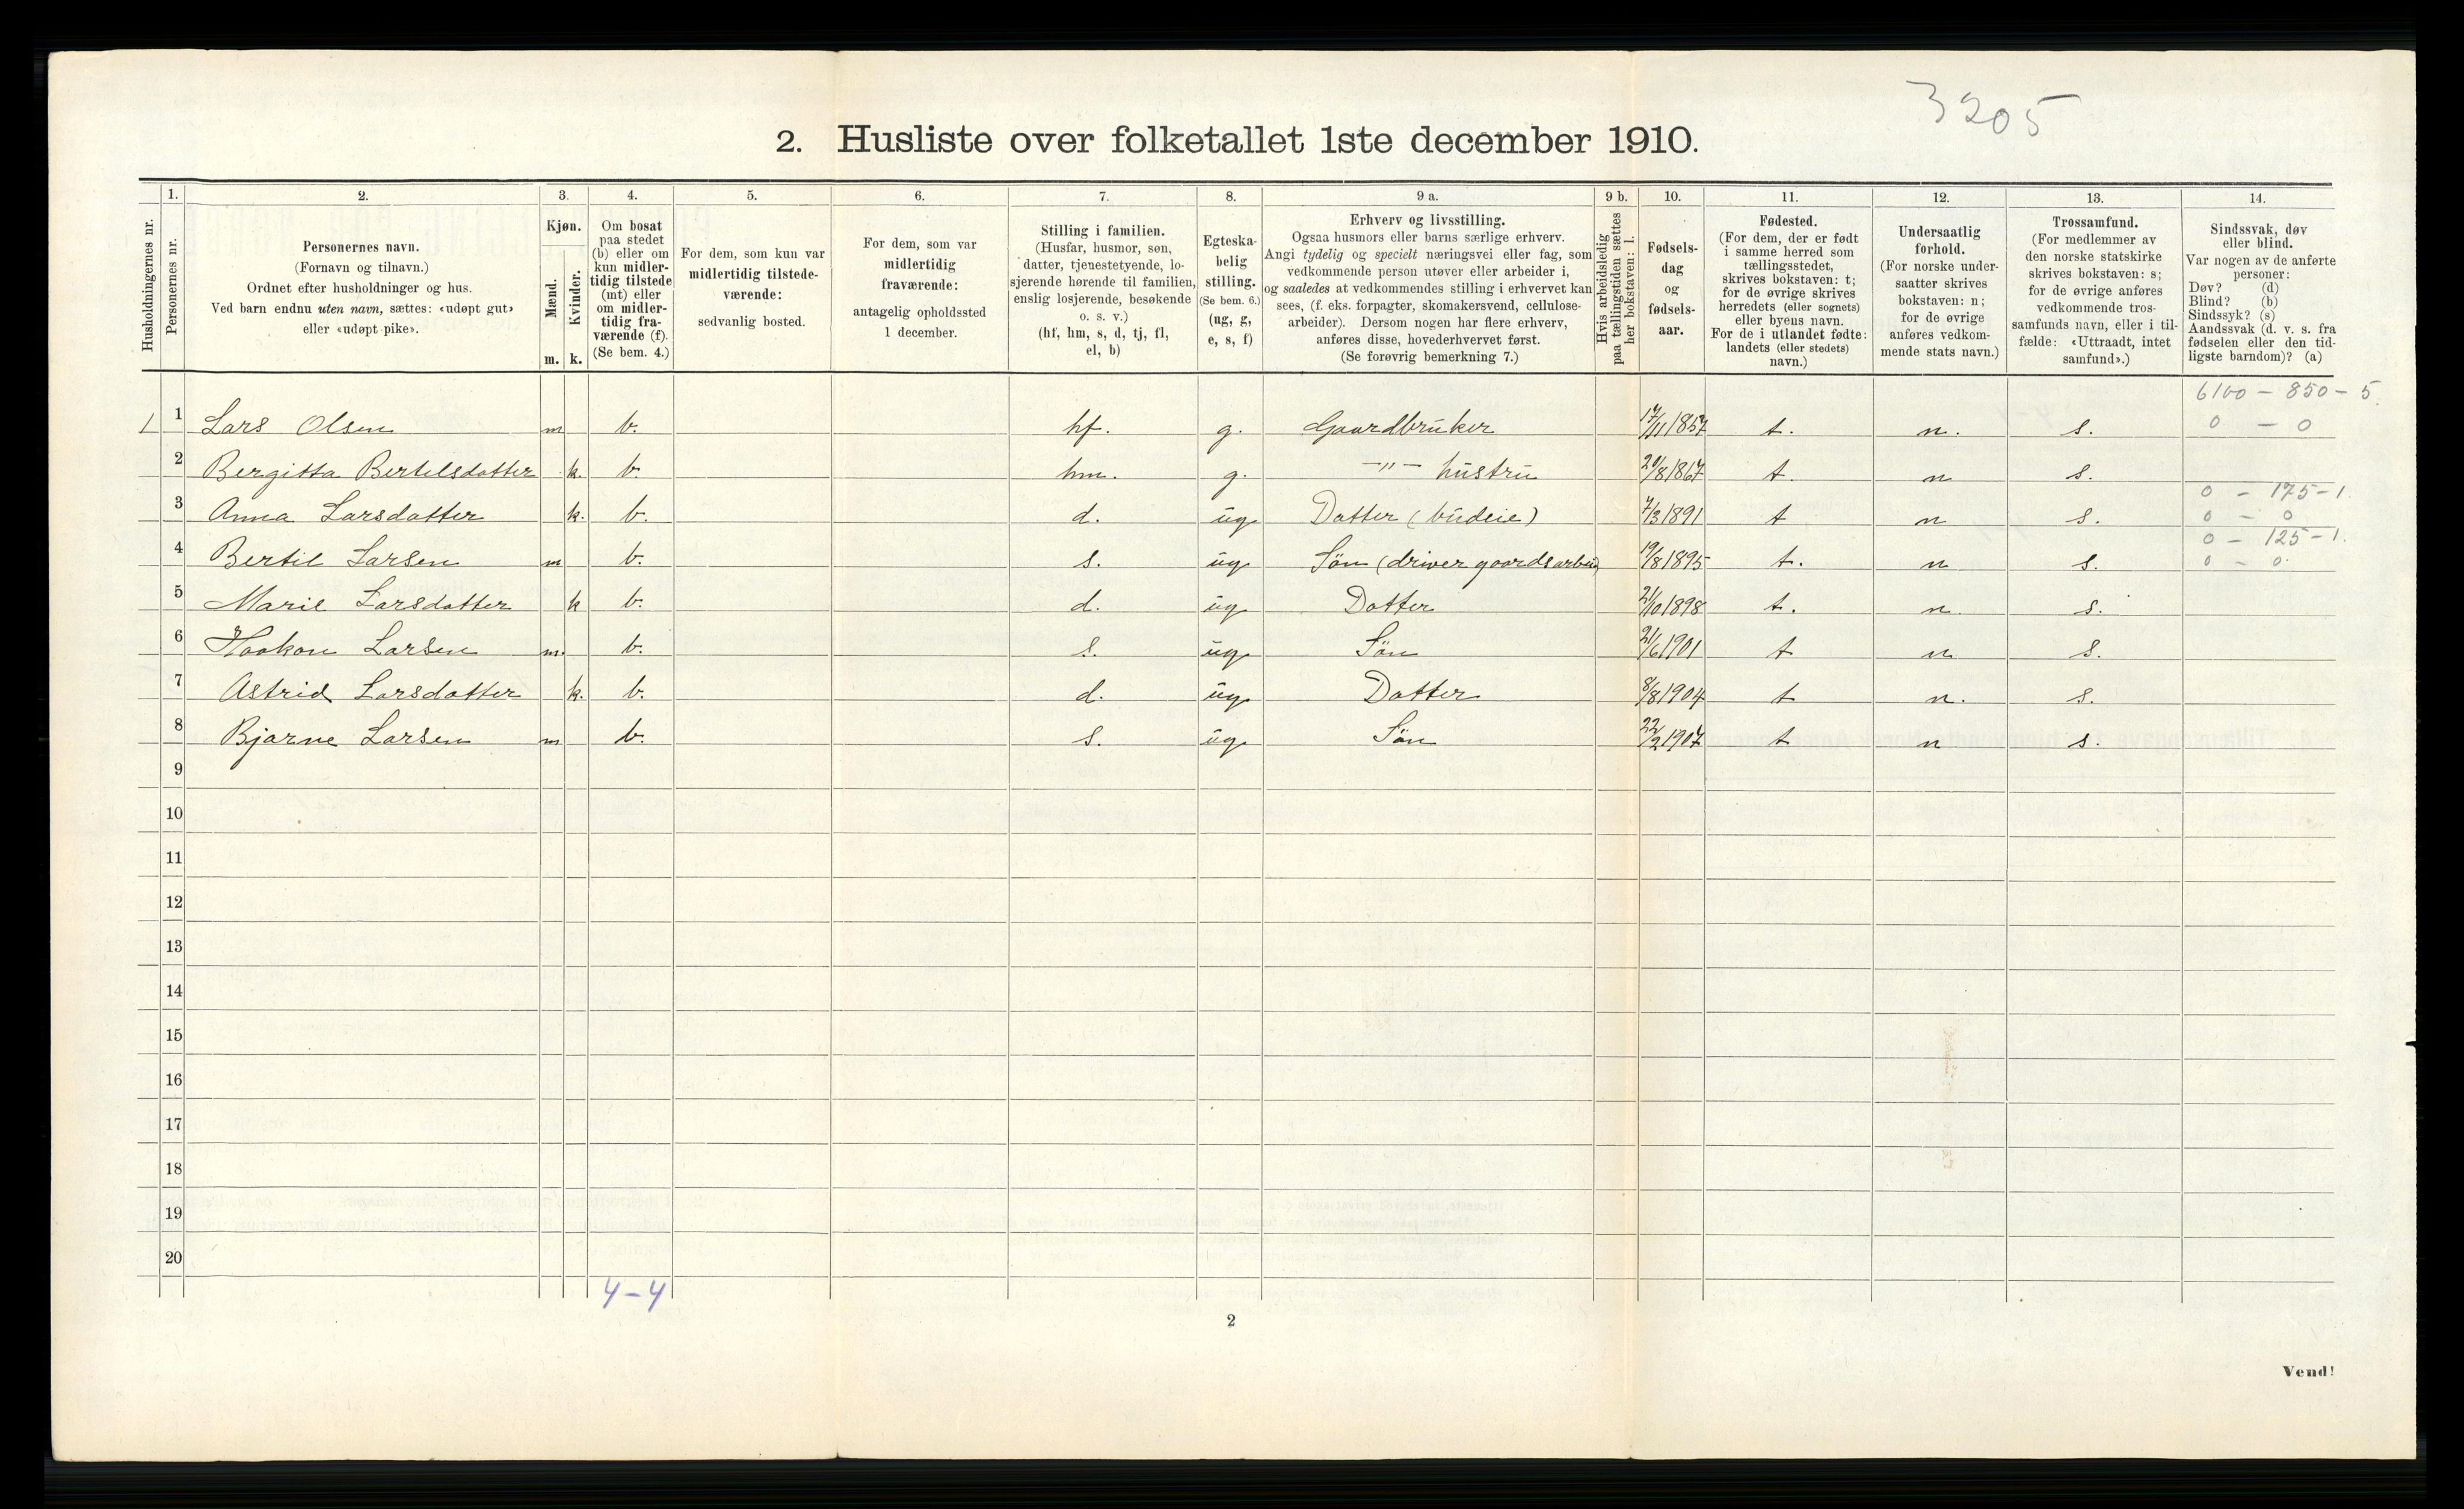 3205
2. Husliste over folketallet 1ste december 1910.
Husholdningernes nr.
1.
Personernes nr.
2.
Personernes navn.
(Fornavn og tilnavn.)
Ordnet efter husholdninger og hus.
Ved barn endnu uten navn, sættes: «udøpt gut»
eller «udøpt pike».
3.
Kjøn.
Mænd.
Kvinder.
m. k.
4.
Om bosat
paa stedet
(b) eller om
kun midler-
tidig tilstede
(mt) eller
om midler-
tidig fra-
værende (f).
(Se bem. 4.)
5.
For dem, som kun var
midlertidig tilstede-
værende:
sedvanlig bosted.
6.
For dem, som var
midlertidig
fraværende:
antagelig opholdssted
1 december.
7.
Stilling i familien.
(Husfar, husmor, søn,
datter, tjenestetyende, lo-
sjerende hørende til familien,
enslig losjerende, besøkende
o. s. v.)
(hf, hm, s, d, tj, fl,
el, b)
8.
Egteska-
belig
stilling.
(Se bem. 6.)
(ug, g,
e, s, f)
9 a.
Erhverv og livsstilling.
Ogsaa husmors eller barns særlige erhverv.
Angi tydelig og specielt næringsvei eller fag, som
vedkommende person utøver eller arbeider i,
og saaledes at vedkommendes stilling i erhvervet kan
sees, (f. eks. forpagter, skomakersvend, cellulose-
arbeider). Dersom nogen har flere erhverv,
anføres disse, hovederhvervet først.
(Se forøvrig bemerkning 7.)
9 b.
Hvis arbeidsledig
paa tællingstiden sættes
her bokstaven: l.
10.
Fødsels-
dag
og
fødsels-
aar.
11.
Fødested.
(For dem, der er født
i samme herred som
tællingsstedet,
skrives bokstaven: t;
for de øvrige skrives
herredets (eller sognets)
eller byens navn.
For de i utlandet fødte:
landets (eller stedets)
navn.)
12.
Undersaatlig
forhold.
(For norske under-
saatter skrives
bokstaven: n;
for de øvrige
anføres vedkom-
mende stats navn.)
13.
Trossamfund.
(For medlemmer av
den norske statskirke
skrives bokstaven: s;
for de øvrige anføres
vedkommende tros-
samfunds navn, eller i til-
fælde: «Uttraadt, intet
samfund».)
14.
Sindssvak, døv
eller blind.
Var nogen av de anførte
personer:
Døv? (d)
Blind? (b)
Sindssyk? (s)
Aandssvak (d. v. s. fra
fødselen eller den tid-
ligste barndom)? (a)
6100 - 850 - 5.
1 1 Lars Olsen m b. hf. g. Gaardbruker 17/11 1857 t. n. s. 0 - 0
2 Bergitta Bertelsdatter k. b. hm. g. -"- hustru 20/8 1867 t. n s.
0 - 175 - 1.
3 Anna Larsdatter k. b. d. ug Datter (budeie) 7/3 1891 t n s. 0 - 0
0 - 125 - 1.
4 Bertil Larsen m b. s. ug Søn (driver gaardsarbeid) 19/8 1895 t. n s. 0 - 0.
5 Marie Larsdatter k b. d. ug Datter 21/10 1898 t. n. s.
6 Haakon Larsen m. b. s. ug Søn 21/6 1901 t n. s.
7 Astrid Larsdatter k. b. d. ug Datter 8/8 1904 t n. s.
8 Bjarne Larsen m b. s. ug Søn 22/2 1907 t n s.
9
10
11
12
13
14
15
16
17
18
19
20
4-4
2
Vend!